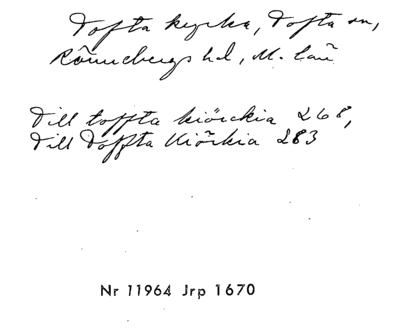 Tofta kyrka, Tofta sn,
Rönnebergs hd, M. län
Till toffta kiörckia 268,
Till Toffta Kiörkia 283
Nr 11964 Jrp 1670